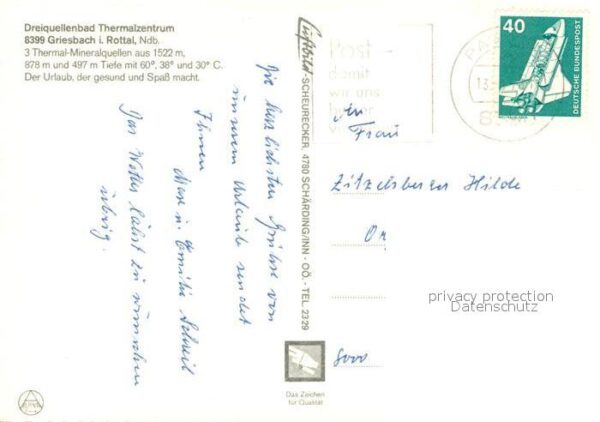 Dreiquellenbad Thermalzentrum
8399 Griesbach i. Rottal, Ndb.
3 Thermal-Mineralquellen aus 1522 m,
878 m und 497 m Tiefe mit 60°, 38° und 30° C.
Der Urlaub, der gesund und Spaß macht.
Die herzlichsten Grüße von
unserem Urlaube sendet
Ihnen
Max u. Emilie
Das Wetter läßt zu wünschen
übrig.
Luftbild-SCHEURECKER, 4780 SCHÄRDING/INN - OÖ. - TEL. 2329
Post
damit
wir uns
40
DEUTSCHE BUNDESPOST
An
Frau
Zitzelsberger Hilde
privacy protection
Datenschutz
8000
Das Zeichen
für Qualität